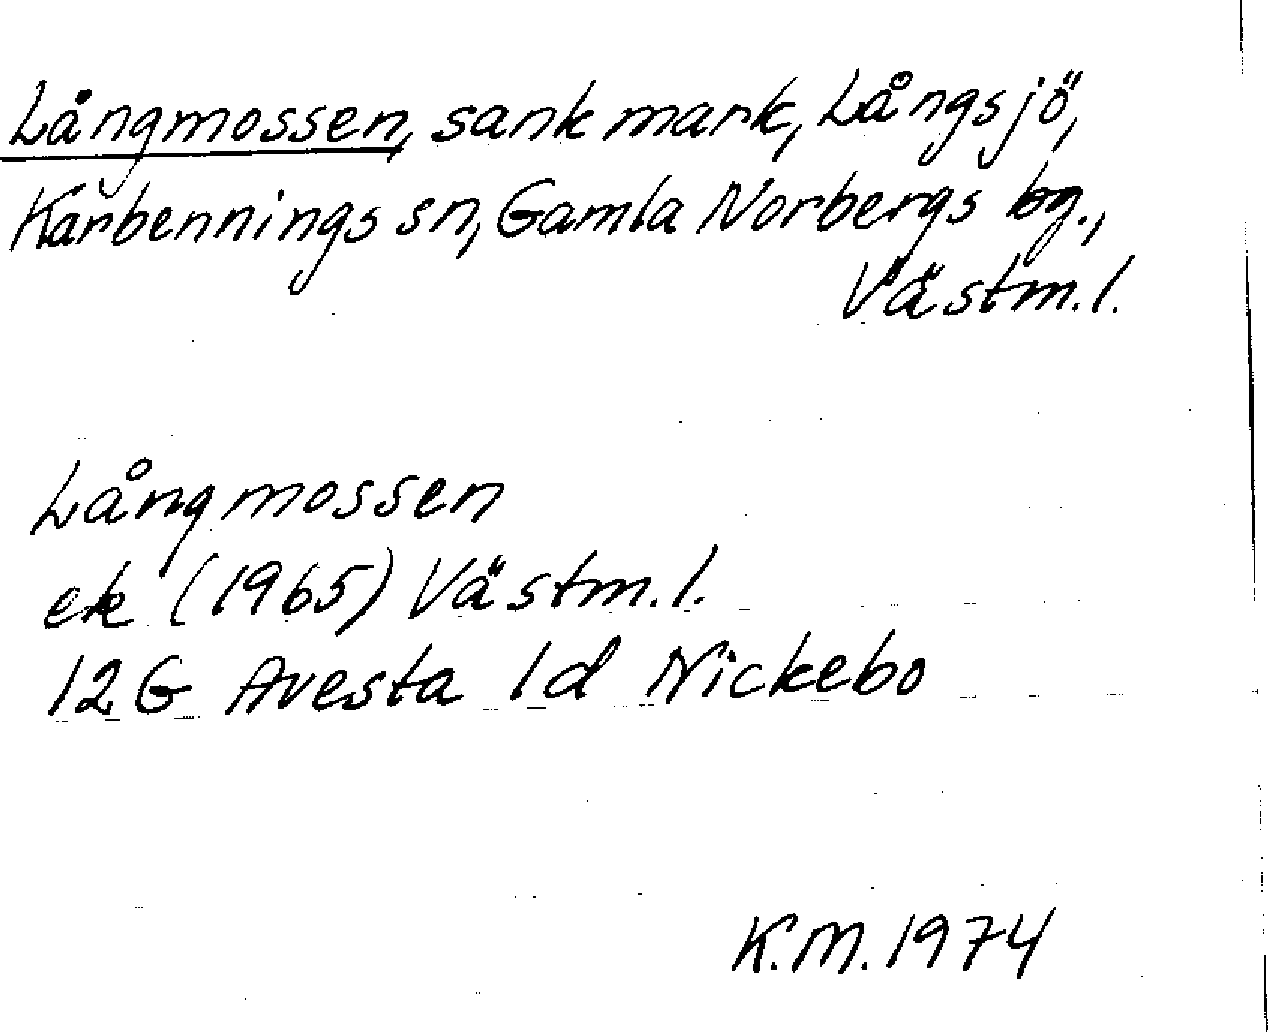 Långmossen, sank mark, Långsjö,
Karbennings sn, Gamla Norbergs bg.,
Västm.l.
Långmossen
ek (1965) Västm.l.
12G Avesta 1d Nickebo
K.M. 1974